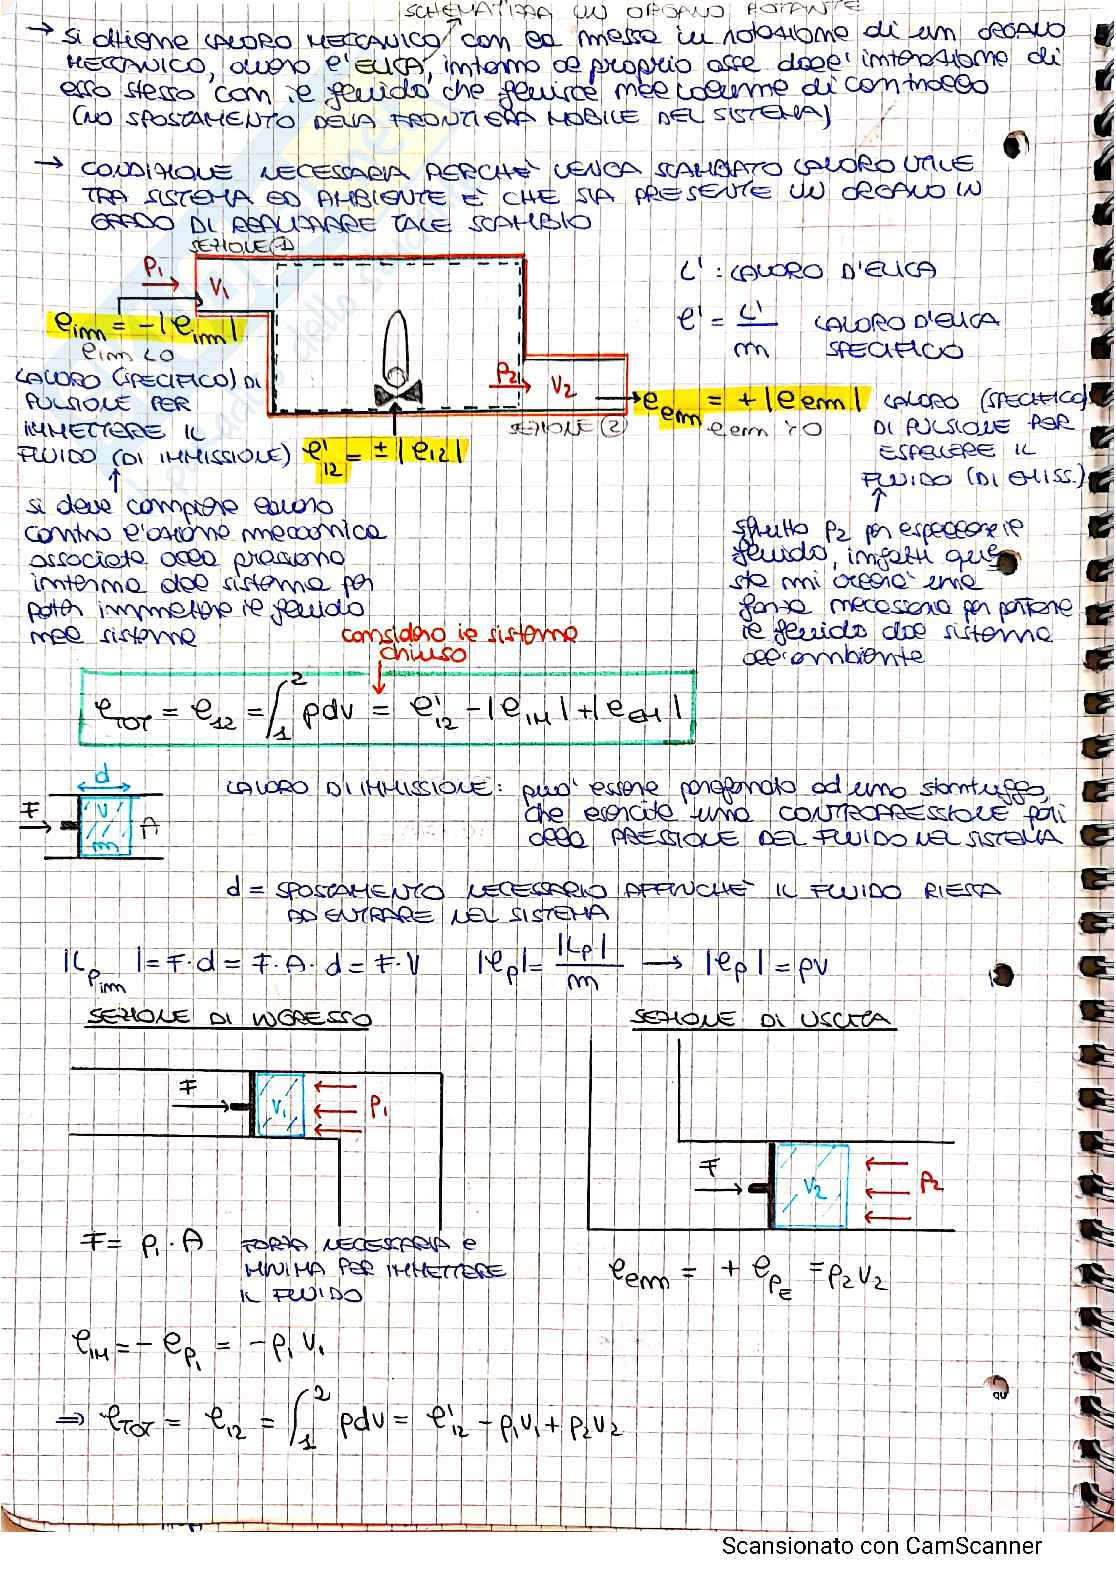 SCHEMATIZZA UN ORGANO ROTANTE
→ si ottiene LAVORO MECCANICO con la messa in rotazione di un ORGANO
MECCANICO, ovvero l'ELICA, intorno al proprio asse dall'interazione di
esso stesso con il fluido che fluisce nel volume di controllo
(NO SPOSTAMENTO DELLA FRONTIERA MOBILE DEL SISTEMA)
→ CONDIZIONE NECESSARIA PERCHÈ VENGA SCAMBIATO LAVORO UTILE
TRA SISTEMA ED AMBIENTE È CHE SIA PRESENTE UN ORGANO IN
GRADO DI REALIZZARE TALE SCAMBIO
SEZIONE (1)
P1
V1
L' : LAVORO D'ELICA
l' = L'/m LAVORO D'ELICA
SPECIFICO
lim = -|lim|
lim < 0
P2
V2
SEZIONE (2)
l'12 = ±|l12|
lem = +|lem|
lem > 0
LAVORO (SPECIFICO) DI
PULSIONE PER
IMMETTERE IL
FLUIDO (DI IMMISSIONE)
LAVORO (SPECIFICO)
DI PULSIONE PER
ESPELLERE IL
FLUIDO (DI EMISS.)
si deve compiere lavoro
contro l'azione meccanica
associata alla pressione
interna del sistema per
poter immettere il fluido
nel sistema
sfrutto p2 per espellere il
fluido, infatti que
sta mi creerà una
forza necessaria per portare
il fluido dal sistema
all'ambiente
considero il sistema
chiuso
lTOT = l12 = ∫₁² pdv = l'12 - |lIM| + |lEM|
d
F
V
A
m
LAVORO DI IMMISSIONE: può essere paragonato ad uno stantuffo,
che esercita una CONTROPRESSIONE pari
alla PRESSIONE DEL FLUIDO NEL SISTEMA
d = SPOSTAMENTO NECESSARIO AFFINCHÈ IL FLUIDO RIESCA
AD ENTRARE NEL SISTEMA
|Lpim| = F·d = F·A·d = F·V |lp| = |Lp|/m → |lp| = pv
SEZIONE DI INGRESSO
SEZIONE DI USCITA
F
V1
P1
F
V2
P2
F = p1·A FORZA NECESSARIA e
MINIMA PER IMMETTERE
IL FLUIDO
lem = + lpE = p2v2
lIM = - lp1 = - p1v1
⇒ lTOT = l12 = ∫₁² pdv = l'12 - p1v1 + p2v2
Scansionato con CamScanner